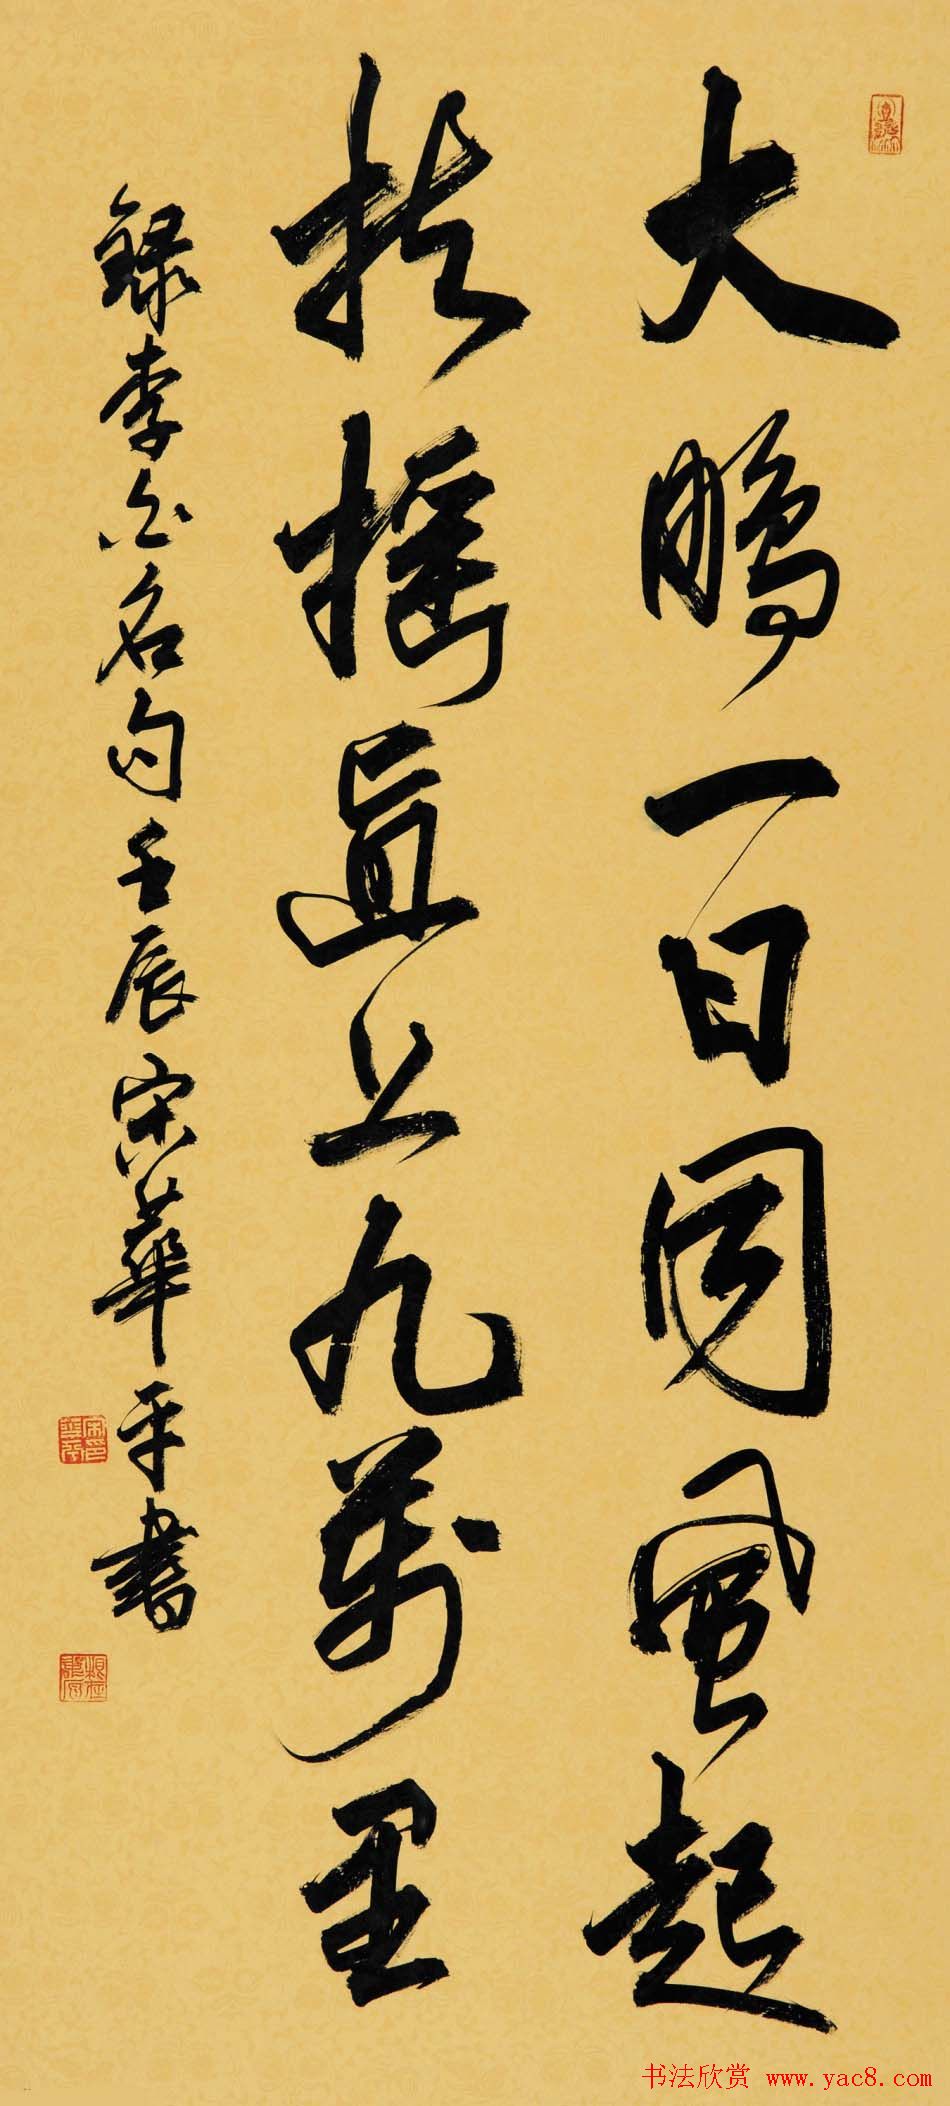 大鹏一日同风起
扶摇直上九萬里
録李白名句壬辰宋華平書
书法欣赏 www.yac8.com